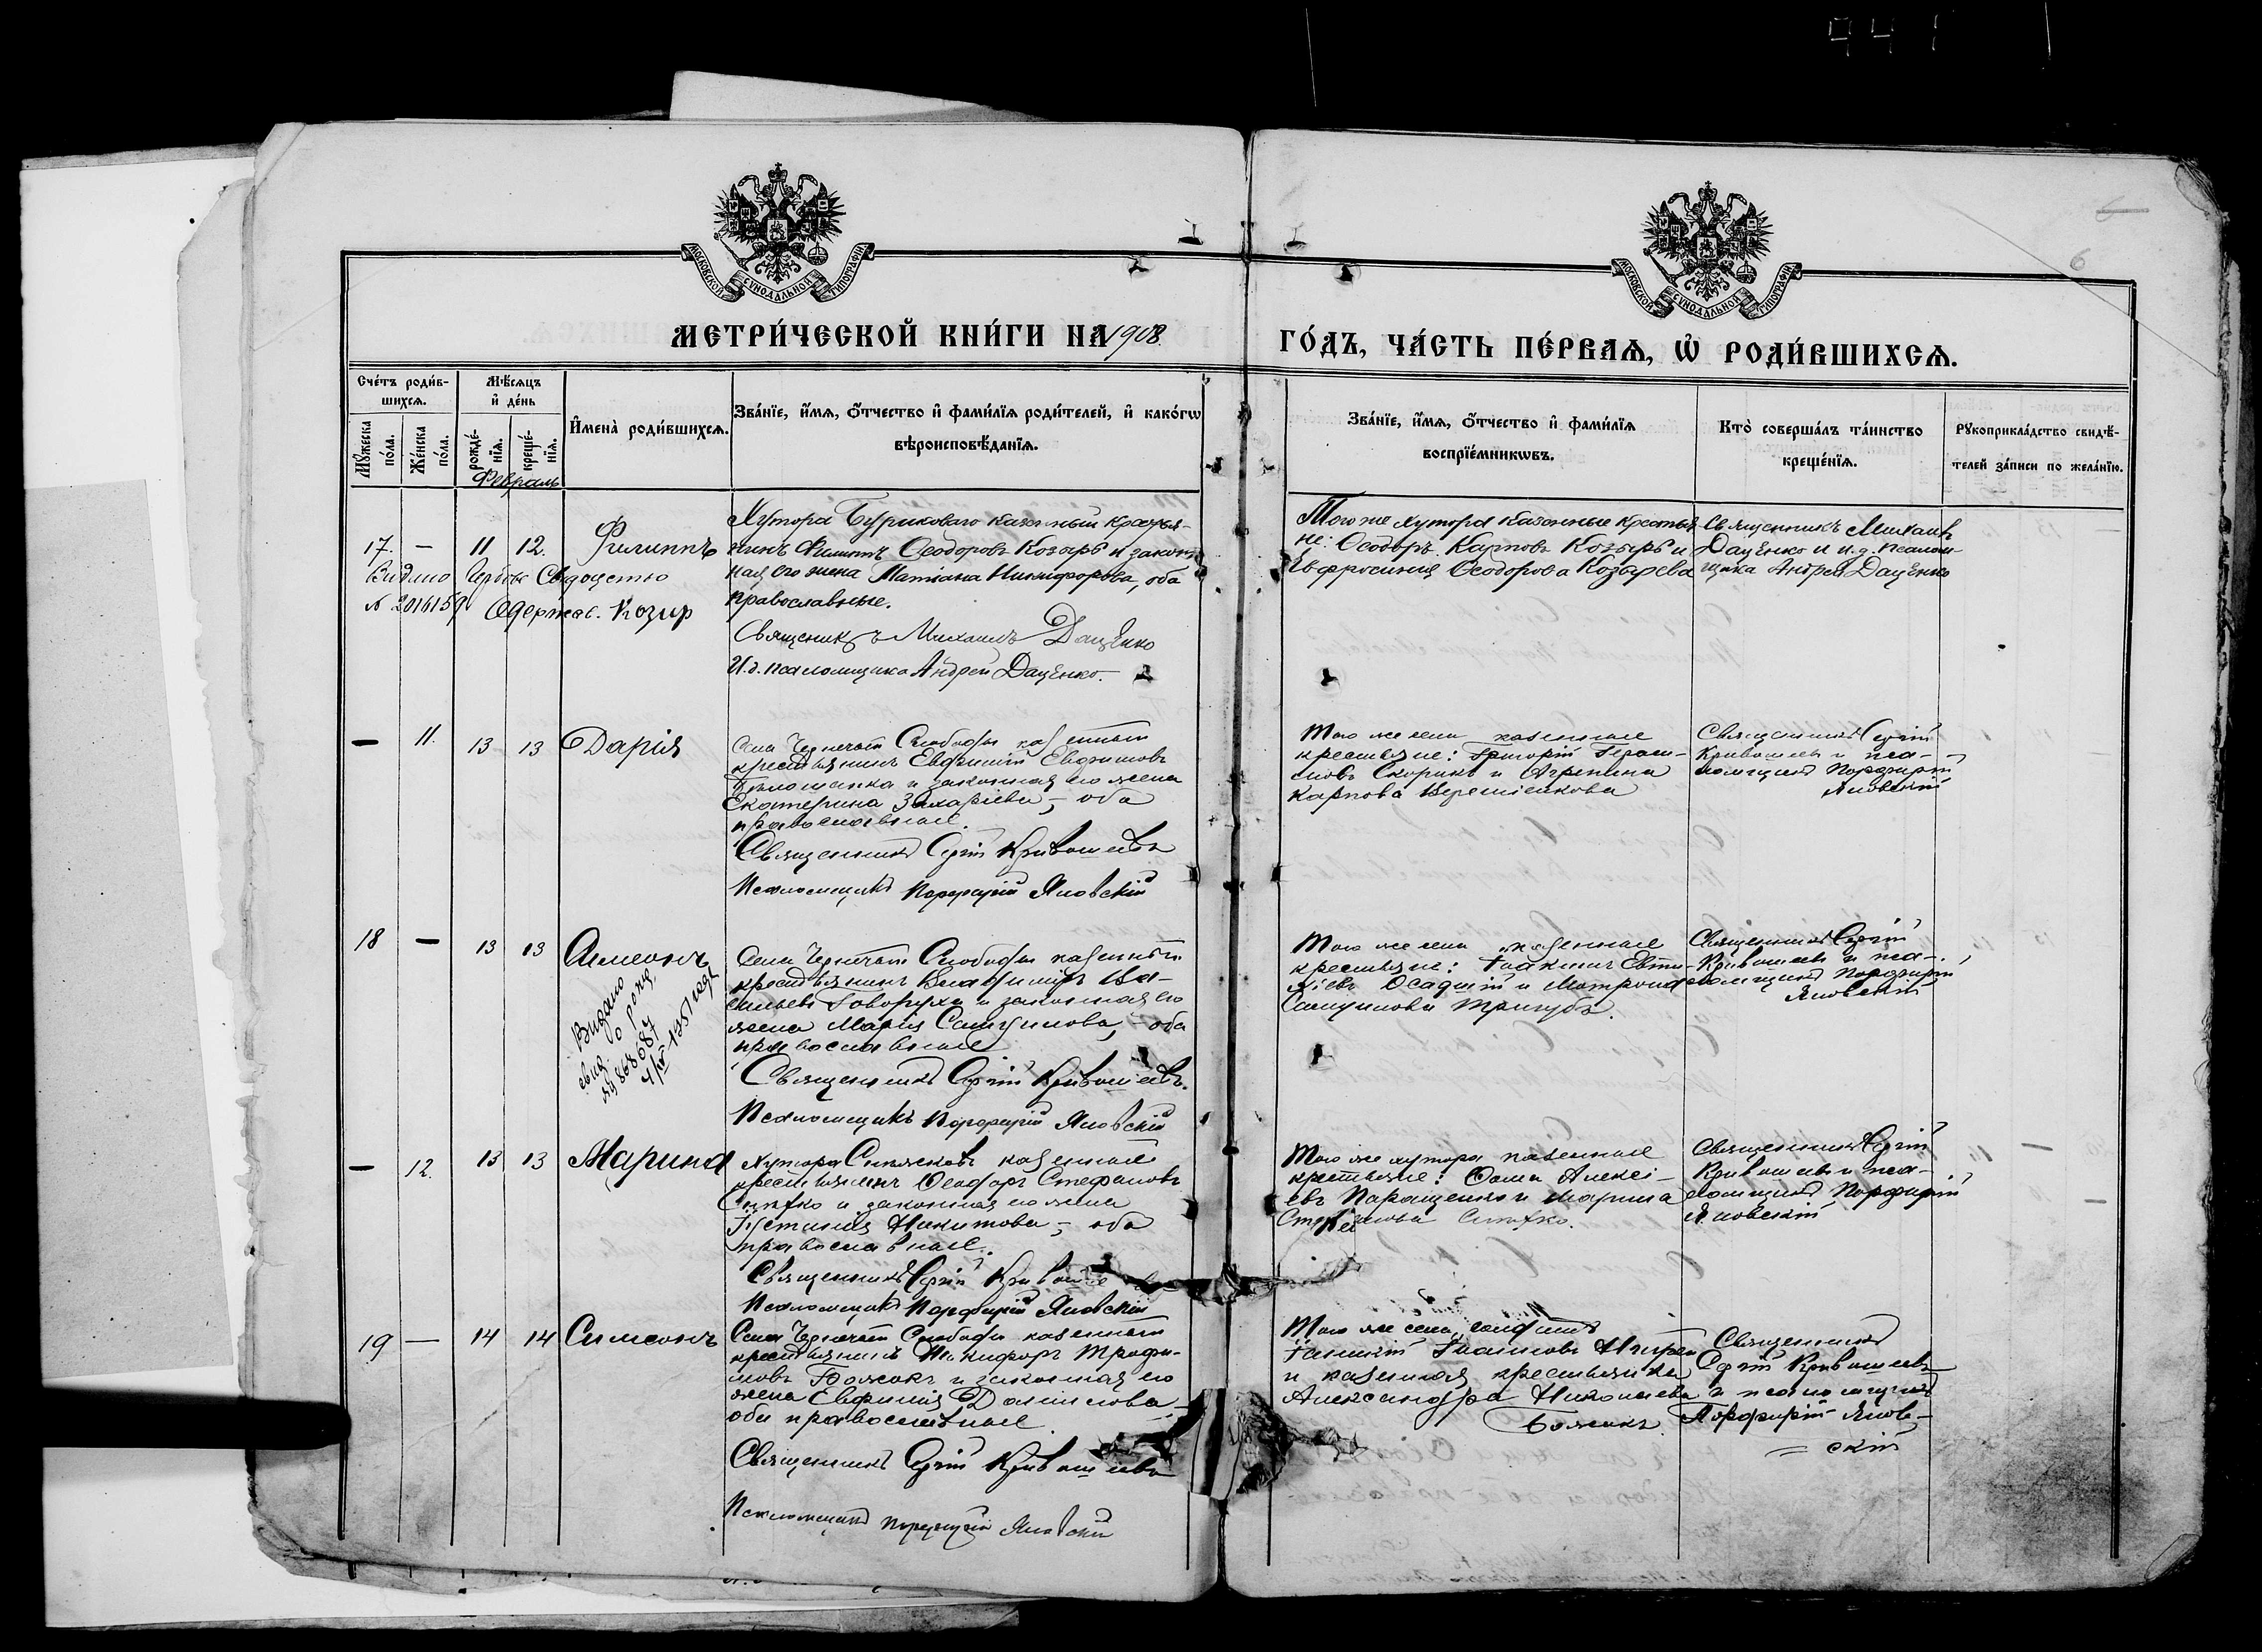 МЕТРИ́ЧЕСКОЙ КНИ́ГИ НА 1908.
ГО́ДЪ, ЧА́СТЬ ПЕ́РВАѦ, Ѽ РОДИ́ВШИХСѦ.
МОСКОВСКОЙ СѴНОДАЛЬНОЙ ТИПОГРАФІИ
МОСКОВСКОЙ СѴНОДАЛЬНОЙ ТИПОГРАФІИ
6
Сче́тъ роди́в-
шихсѧ.
Мꙋ́жеска по́ла.
Же́нска по́ла.
Мѣ́сѧцъ
и҆ де́нь
рожде́-
нїѧ.
креще́-
нїѧ.
Февраль
И҆мена̀ роди́вшихсѧ.
Зва́нїе, и҆́мѧ, ѻ҆́тчество и҆ фами́лїѧ роди́телей, и҆ како́гѡ
вѣроисповѣ́данїѧ.
Зва́нїе, и҆́мѧ, ѻ҆́тчество и҆ фами́лїѧ
воспрїе́мникѡвъ.
Кто̀ соверша́лъ та́инство
креще́нїѧ.
Рꙋкоприкла́дство свидѣ́-
телей за́писи по жела́нїю.
17. — 11 12. Филиппъ
Хутора Бурикового казенный крестья-
нинъ Филиппъ Ѳеодоровъ Козырь и закон-
ная его жена Татіана Никифорова, оба
православные.
Священникъ Михаилъ Даценко
И.д. псаломщика Андрей Даценко.
№ 2016159 Одержав. Козир
Того же хутора казенные крестья-
не: Ѳеодоръ Карповъ Козырь и
Евфросинія Ѳеодорова Козырева
Священникъ Михаилъ
Даценко и и.д. псалом-
щика Андрей Даценко
— 11. 13 13 Дарія
Села Чернечей Слободы казенный
крестьянинъ Евфимій Евфимовъ
и законная его жена
Екатерина Захаріева, — оба
православные.
Священникъ Сергій Кривошеевъ
Псаломщикъ Порфирій Яновскій
Того же села казенные
крестьяне: Григорій Гераси-
мовъ Скорикъ и Агрипина
Карпова
Священникъ Сергій
Кривошеевъ и пса-
ломщикъ Порфирій
Яновскій
18 — 13 13 Симеонъ
Видано
4/IV 1951 года
Села Чернечей Слободы казенный
крестьянинъ Владиміръ Ва-
сильевъ Говоруха и законная его
жена Марія Самуилова, — оба
православные
Священникъ Сергій Кривошеевъ.
Псаломщикъ Порфирій Яновскій
Того же села казенные
крестьяне: Іоакимъ Евти-
хіевъ Осадчій и Матрона
Самуилова Тригубъ.
Священникъ Сергій
Кривошеевъ и пса-
ломщикъ Порфирій
Яновскій
— 12. 13 13 Марина
Хутора казенный
крестьянинъ Ѳеодоръ Стефановъ
и законная его жена
Іустинія Никитова, — оба
православные.
Священникъ Сергій
Псаломщикъ Порфирій Яновскій
Того же хутора казенные
крестьяне: Ѳома Алексі-
евъ Паращенко и Марина
Священникъ Сергій
Кривошеевъ и пса-
ломщикъ Порфирій
Яновскій
19 — 14 14 Симеонъ
Села Чернечей Слободы казенный
крестьянинъ Никифоръ Трофи-
мовъ Божокъ и законная его
жена Евфимія Даніилова —
оба православные
Священникъ Сергій Кривошеевъ
Псаломщикъ Порфирій Яновскій
Того же села солдатъ
и казенная крестьянка
Александра Николаева
Божокъ.
Священникъ
Сергій Кривошеевъ
и псаломщикъ
Порфирій Янов-
скій